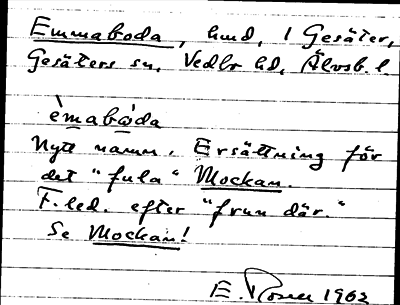 Emmaboda, hmd, 1 Gesäter,
Gesäters sn, Vedbo hd, Älvsb. l.
èmabòda
Nytt namn. Ersättning för
det "fula" Mockan.
F. led. efter "frun där."
Se Mockan!
E. 1962